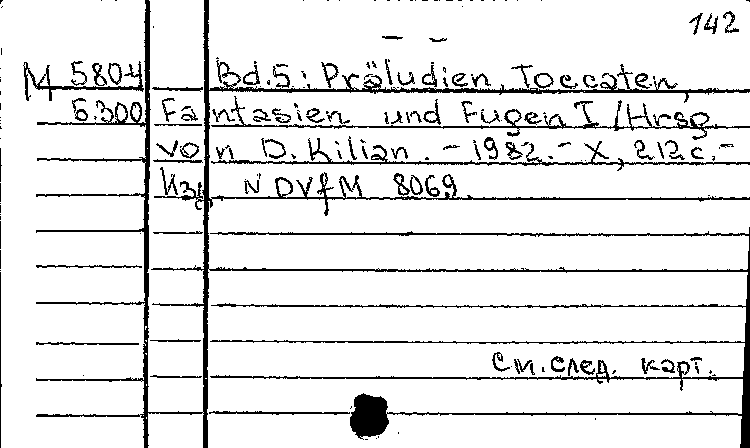 142
— —
М 5804 Bd.5: Präludien, Toccaten,
5.300 Fantasien und Fugen I / Hrsg.
von D. Kilian. - 1982. - X, 212 с. -
Изд. N DVfM 8069.
См. след. карт.